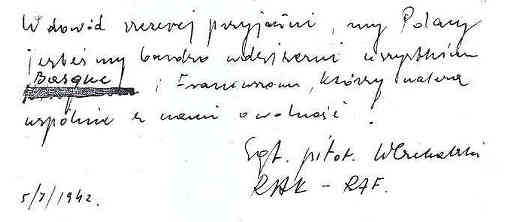 W dowód szczerej przyjaźni, my Polacy
jesteśmy bardzo wdzięczni wszystkim
Basque
i Francuzom, którzy walczą
wspólnie z nami o wolność.
Sgt. pilot.
RAK - RAF.
5/7/1942.